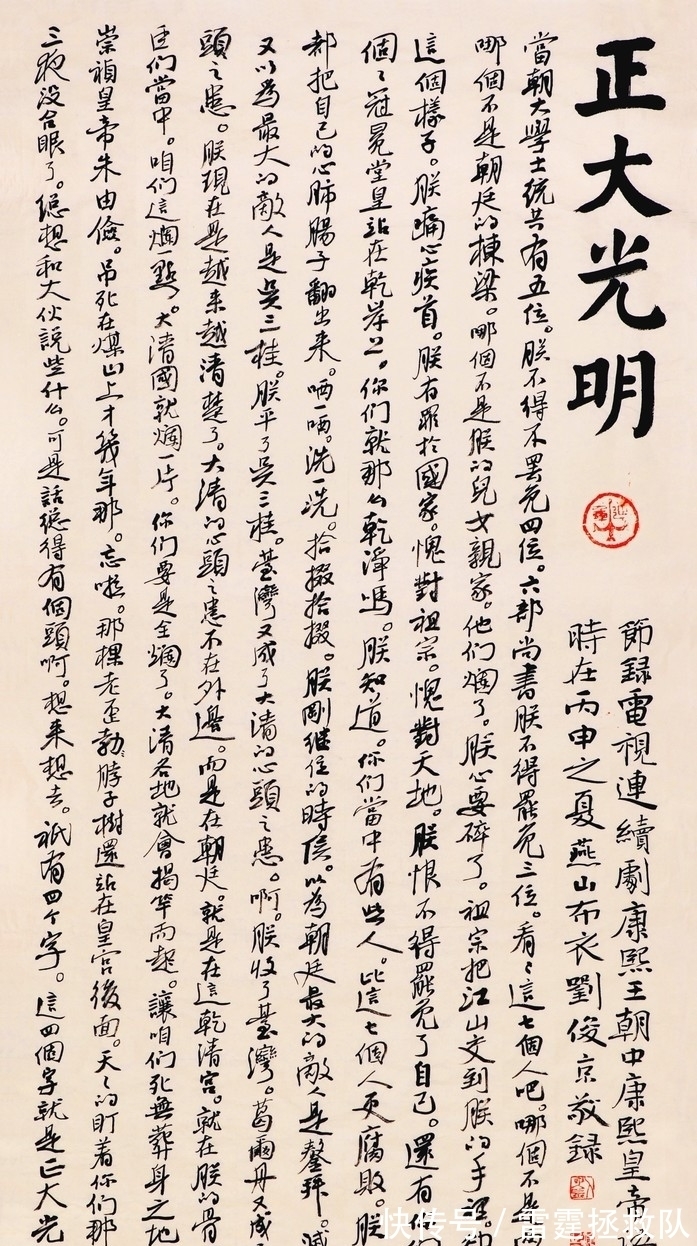 正大光明
節録電視連續劇康熙王朝中康熙皇帝
時在丙申之夏燕山布衣劉俊京敬録
當朝大學士統共有五位。朕不得不罢免四位。六部尚書朕不得罷免三位。看〻這七個人吧。哪個不是
哪個不是朝廷的棟梁。哪個不是朕的兒女親家。他们爛了。朕心要碎了。祖宗把江山交到朕的手裡。却
這個樣子。朕痛心疾首。朕有罪於國家。愧對祖宗。愧對天地。朕恨不得罷免了自己。還有你们
個〻冠冕堂皇站在乾岸上。你们就那么乾淨嗎。朕知道。你们當中有些人。比這七個人更腐敗。朕
都把自己的心肺腸子翻出来。哂一哂。洗一洗。拾掇拾掇。朕剛继位的時候。以為朝廷最大的敵人是鳌拜。滅
又以為最大的敵人是吴三桂。朕平了吴三桂。臺灣又成了大清的心頭之患。啊。朕收了臺灣。葛爾丹又成
頭之患。朕現在是越来越清楚了。大清的心頭之患不在外邊。而是在朝廷。就是在這乾清宫。就在朕的骨
臣们當中。咱们這爛一點。大清國就爛一片。你们要是全爛了。大清各地就會揭竿而起。讓咱们死無葬身之地
崇禎皇帝朱由儉。吊死在煤山上才幾年那。忘啦。那棵老歪勃脖子樹還站在皇宫後面。天〻的盯着你们那
三夜没合眼了。總想和大伙説些什么。可是話總得有個頭啊。想来想去。祇有四个字。這四個字就是正大光
快传号／雷霆拯救队